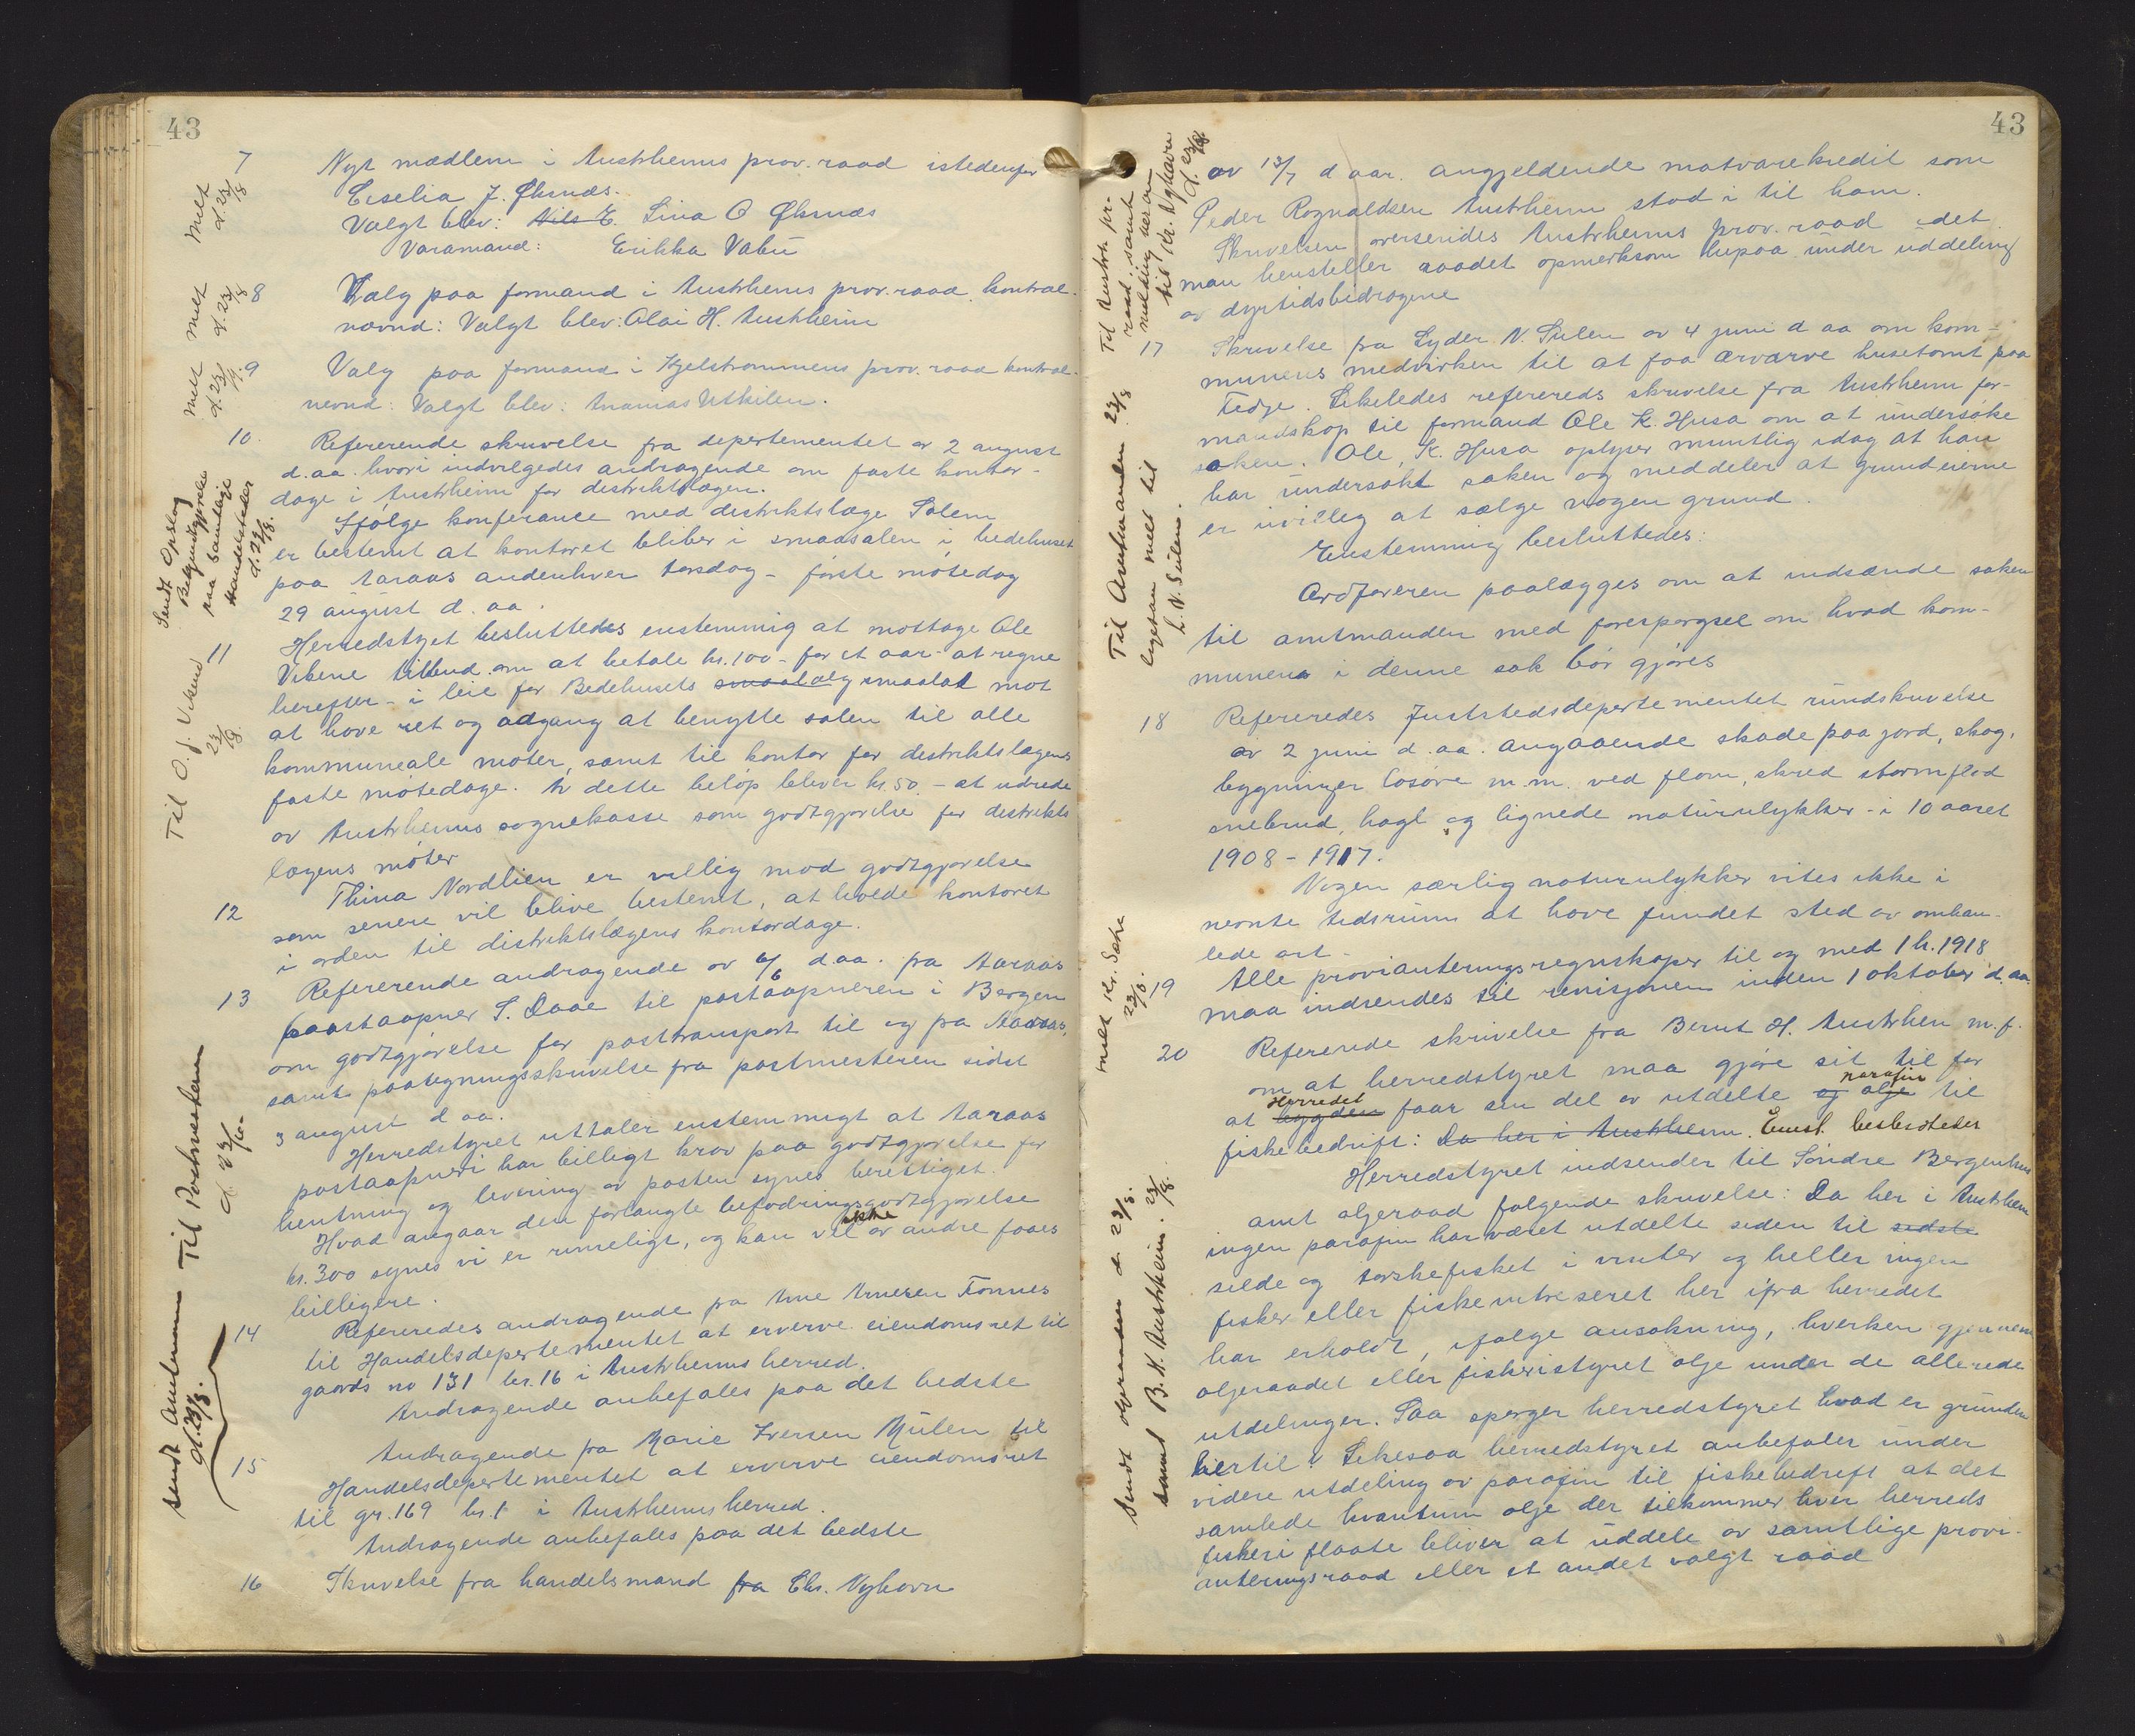 43
7 Nyt mædlem i Austrheims prov. raad istedenfor
Meldt d. 23/8
Ceselia J. Øksnæs.
Valgt blev: Nils E. Lina O Øksnæs
Varamand: Erikka Vabø
8 Valg paa formand i Austrheims prov. raad kontrol-
Meldt d. 23/8
nævnd: Valgt blev: Olai H. Austrheim
9 Valg paa formand i Kjelstraumens prov. raad kontrol-
Meldt d. 23/8.
nevnd: Valgt blev: Andreas Utkilen.
10. Refererende skrivelse fra departementet av 2 august
d. aa. hvori indvilgedes andragende om faste kontor-
dage i Austrheim for distriktslægen.
Sendt Opslag
Bekjendtgjørelse
paa samtlige
Handelsteder
d. 23/8.
Ifølge konferance med distriktslæge Solem
er bestemt at kontoret bliber i smaasalen i bedehuset
paa Aaraas andenhver torsdag - første møtedag
29 august d. aa.
11 Herredstyret besluttedes enstemmig at mottage Ole
Til O. J. Viken 23/8.
Vikene tilbud om at betale kr. 100 - for et aar - at regne
herefter - i leie for Bedehusets smaalalg smaalal mot
at have ret og adgang at benytte salen til alle
kommuneale møter, samt til kontor for distriktslægens
faste møtedage. Av dette beløp blever kr. 50. - at udrede
av Austrheims sognekasse som godtgjørelse for distrikts
lægens møter
12 Thina Nordlien er villig mod godtgjørelse
som senere vil blive bestemt, at holde kontoret
i orden til distriktslægens kontordage.
13 Refererende andragende av 6/6 d. aa. fra Aaraas
paastaapner S. Daae til postaapneren i Bergen
om godtgjørelse for posttransport til og fra Aaraas,
samt paategningsskrivelse fra postmesteren sidst
3 august d aa.
Til Postmesteren d. 23/8.
Herredstyret uttaler enstemmigt at Aaraas
postaapneri har billigt krav paa godtgjørelse for
hentning og levering av posten synes berettiget.
Hvad angaar den forlangte befodringsgodtgjørelse
kr. 300 synes vi er rimeligt, og kan vel ikke av andre faaes
billigere.
14 Refereredes andragende fra Arne Arnesen Fonnes
til Handelsdepartementet at erverve eiendomsret til
gaards no 131 br. 16 i Austrheims herred.
Andragende anbefales paa det bedste
Sendt Amtmann d. 23/8.
15 Andragende fra Marie Iversen Mulen til
Handelsdepartementet at erverve eiendomsret
til gr. 169 br. 1 i Austrheims herred.
Andragende anbefales paa det bedste
16 Skrivelse fra handelsmand fra Chr. Nyhavn
43
av 13/7 d aar. angjeldende matvarekredit som
Peder Rognaldsen Austrheim stod i til ham.
Til Austrh. pr. raad. samt melding herom til Kr. Nyhavn d. 23/8.
Skrivelsen oversendes Austrheims prov. raad idet
man henstiller raadet opmerksom herpaa under uddeling
av dyrtidsbidragene
17 Skrivelse fra Lyder N. Sulen av 4 juni d aa om kom-
munens medvirken til at faa ærvarve husetomt paa
Fedje. Likeledes refereres skrivelse fra Austrheim for-
mandskap til formand Ole K. Husa om at undersøke
saken. Ole K. Husa oplyser muntlig idag at han
har undersøkt saken og meddeler at grundeierne
er uvillig at sælge nogen grund.
Til Amtmanden 23/8
ligesaa melt til
L. N. Sulen.
Enstemmig besluttedes:
Ordføreren paalægges om at indsænde saken
til amtmanden med forespørgsel om hvad kom-
munena i denne sak bør gjøres
18 Refereredes Juststedsdepartementet rundskrivelse
av 2 juni d. aa. angaaende skade paa jord, skog,
bygninger løsøre m.m. ved flom, skred stormflod
snebrud, hagl og lignede naturulykker - i 10 aaret
1908 - 1917.
Nogen særlig naturulykker vites ikke i
nevnte tidsrum at have fundet sted av omhan-
lede art.
19 Alle provianteringsregnskaper til og med 1 h. 1918
maa indsendes til revisjonen inden 1 oktober d. aa.
Meldt Kr. Sætre 23/8.
20 Refererede skrivelse fra Bernt H. Austrhen m. f.
om at herredstyret maa gjøre sit til for
at bygden Herredet faar sin del av utdelte og olje parafin til
fiskebedrift: Da her i Austrheim. Eenst. besluttedes
Herredstyret indsender til Söndre Bergenhus
amt oljeraad følgende skrivelse: Da her i Austrheim
ingen parafin har været utdelte siden til sidste
silde og torskefisket i vinter og heller ingen
fisker eller fiskeintreseret her ifra herredet
har erholdt, ifølge ansøkning, hverken gjennem
oljeraadet eller fiskeristyret olje under de allerede
utdelinger. Saa spørger herredstyret hvad er grunden
hertil? Likesaa herredstyret anbefaler under
videre utdeling av parafin til fiskebedrift at det
samlede kvantum olje der tilkommer hver herreds
fiskeriflaate bliver at uddele av samtlige provi-
anteringsraad eller et andet valgt raad
Sendt oljeraadet d. 23/8.
samt B. H. Austrheim. 23/8.